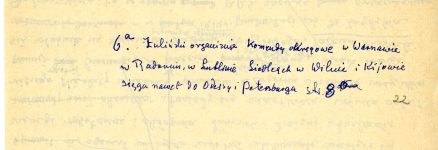 6.a Żuliński organizuje Komendy okręgowe w Warszawie
w Radomiu, w Lublinie Siedlcach w Wilnie i Kijowie
sięga nawet do Odessy i Petersburga
22